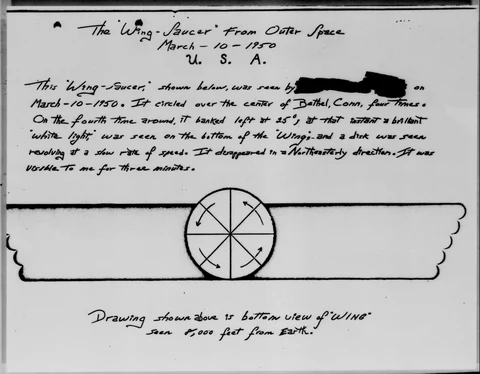 The "Wing-Saucer" From Outer Space
March-10-1950
U. S. A.
This "Wing-Saucer," shown below, was seen by on
March-10-1950. It circled over the center of Bethel, Conn, four times.
On the fourth time around, it banked left at 25°; at that instant a brilliant
"white light," was seen on the bottom of the "Wing," and a disk was seen
revolving at a slow rate of speed. It disappeared in a Northeasterly direction. It was
visible to me for three minutes.
Drawing shown above is bottom view of "WING"
seen 8,000 feet from Earth.